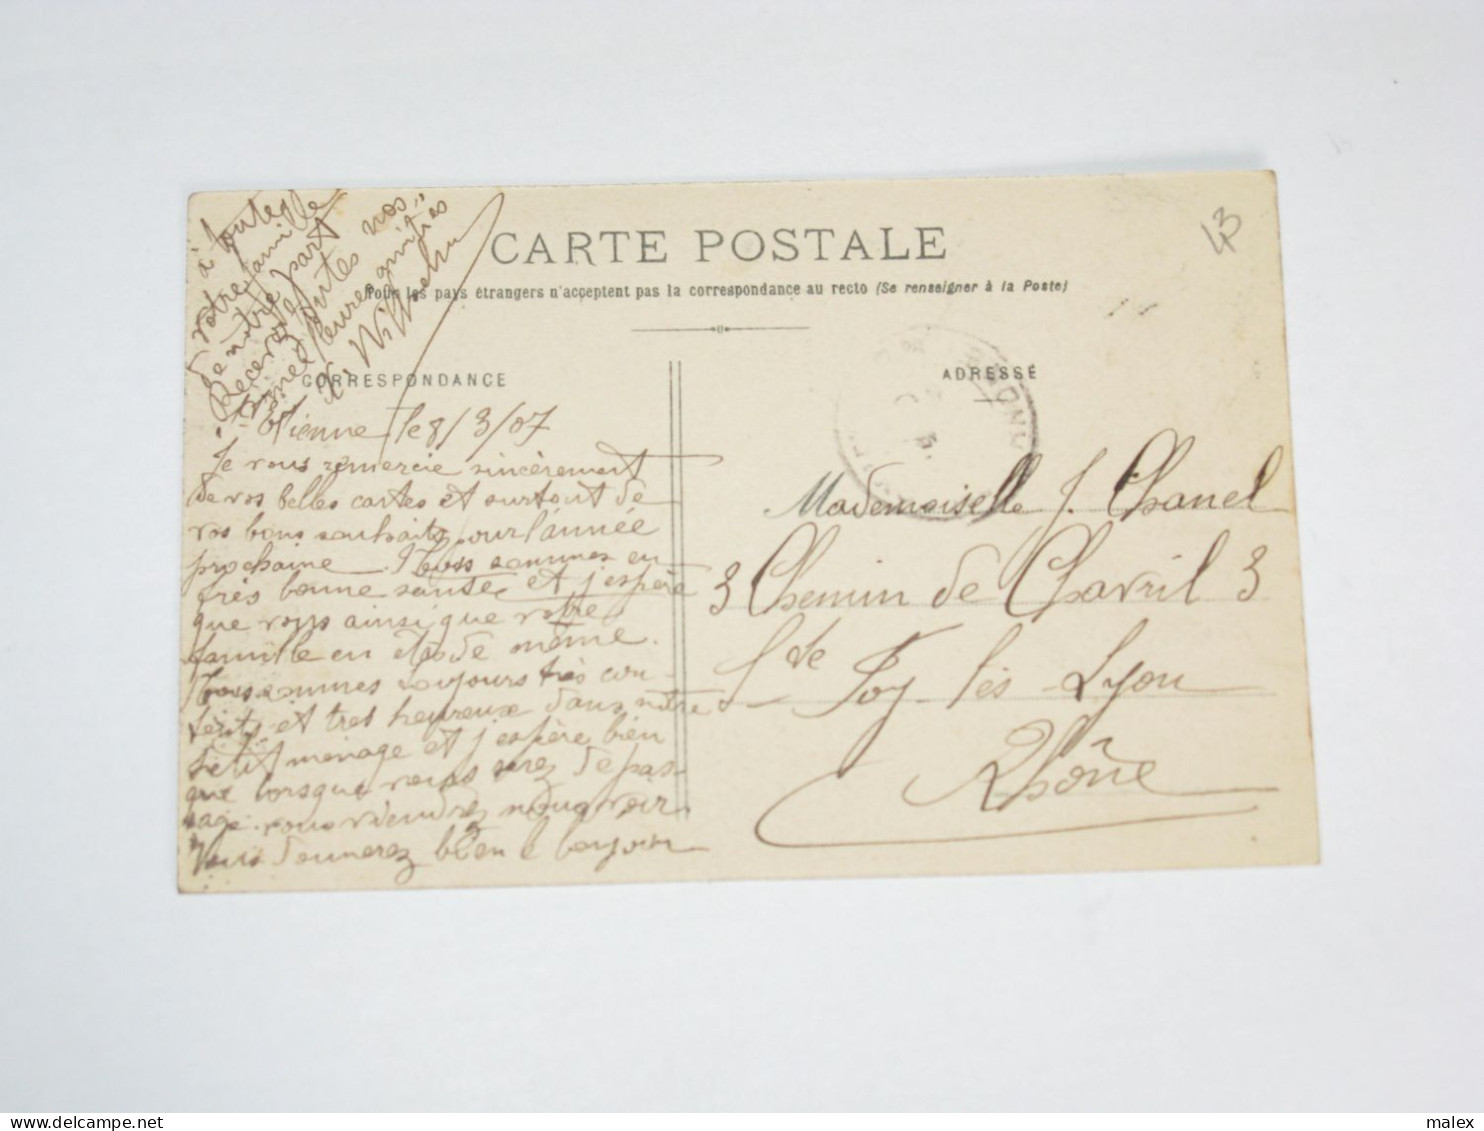 CARTE POSTALE
Tous les pays étrangers n'acceptent pas la correspondance au recto (Se renseigner à la Poste)
CORRESPONDANCE
ADRESSE
43
St Etienne le 8/3/07
Je vous remercie sincèrement
de vos belles cartes et surtout de
vos bons souhaits pour l'année
prochaine. Nous sommes en
très bonne santée et j'espère
que vous ainsi que votre
famille en et de même.
Nous sommes toujours très con-
tents et tres heureux dans notre
petit menage et j'espère bien
que lorsque vous serez de pas-
sage vous viendrez nous voir
Vous donnerez bien le bonjour
à toutes
votre famille
de notre part
Recevez toutes nos
amities
Mademoiselle J. Chanel
3 Chemin de Chavril 3
Ste Foy lès-Lyon
Rhône
www.delcampe.net
malex